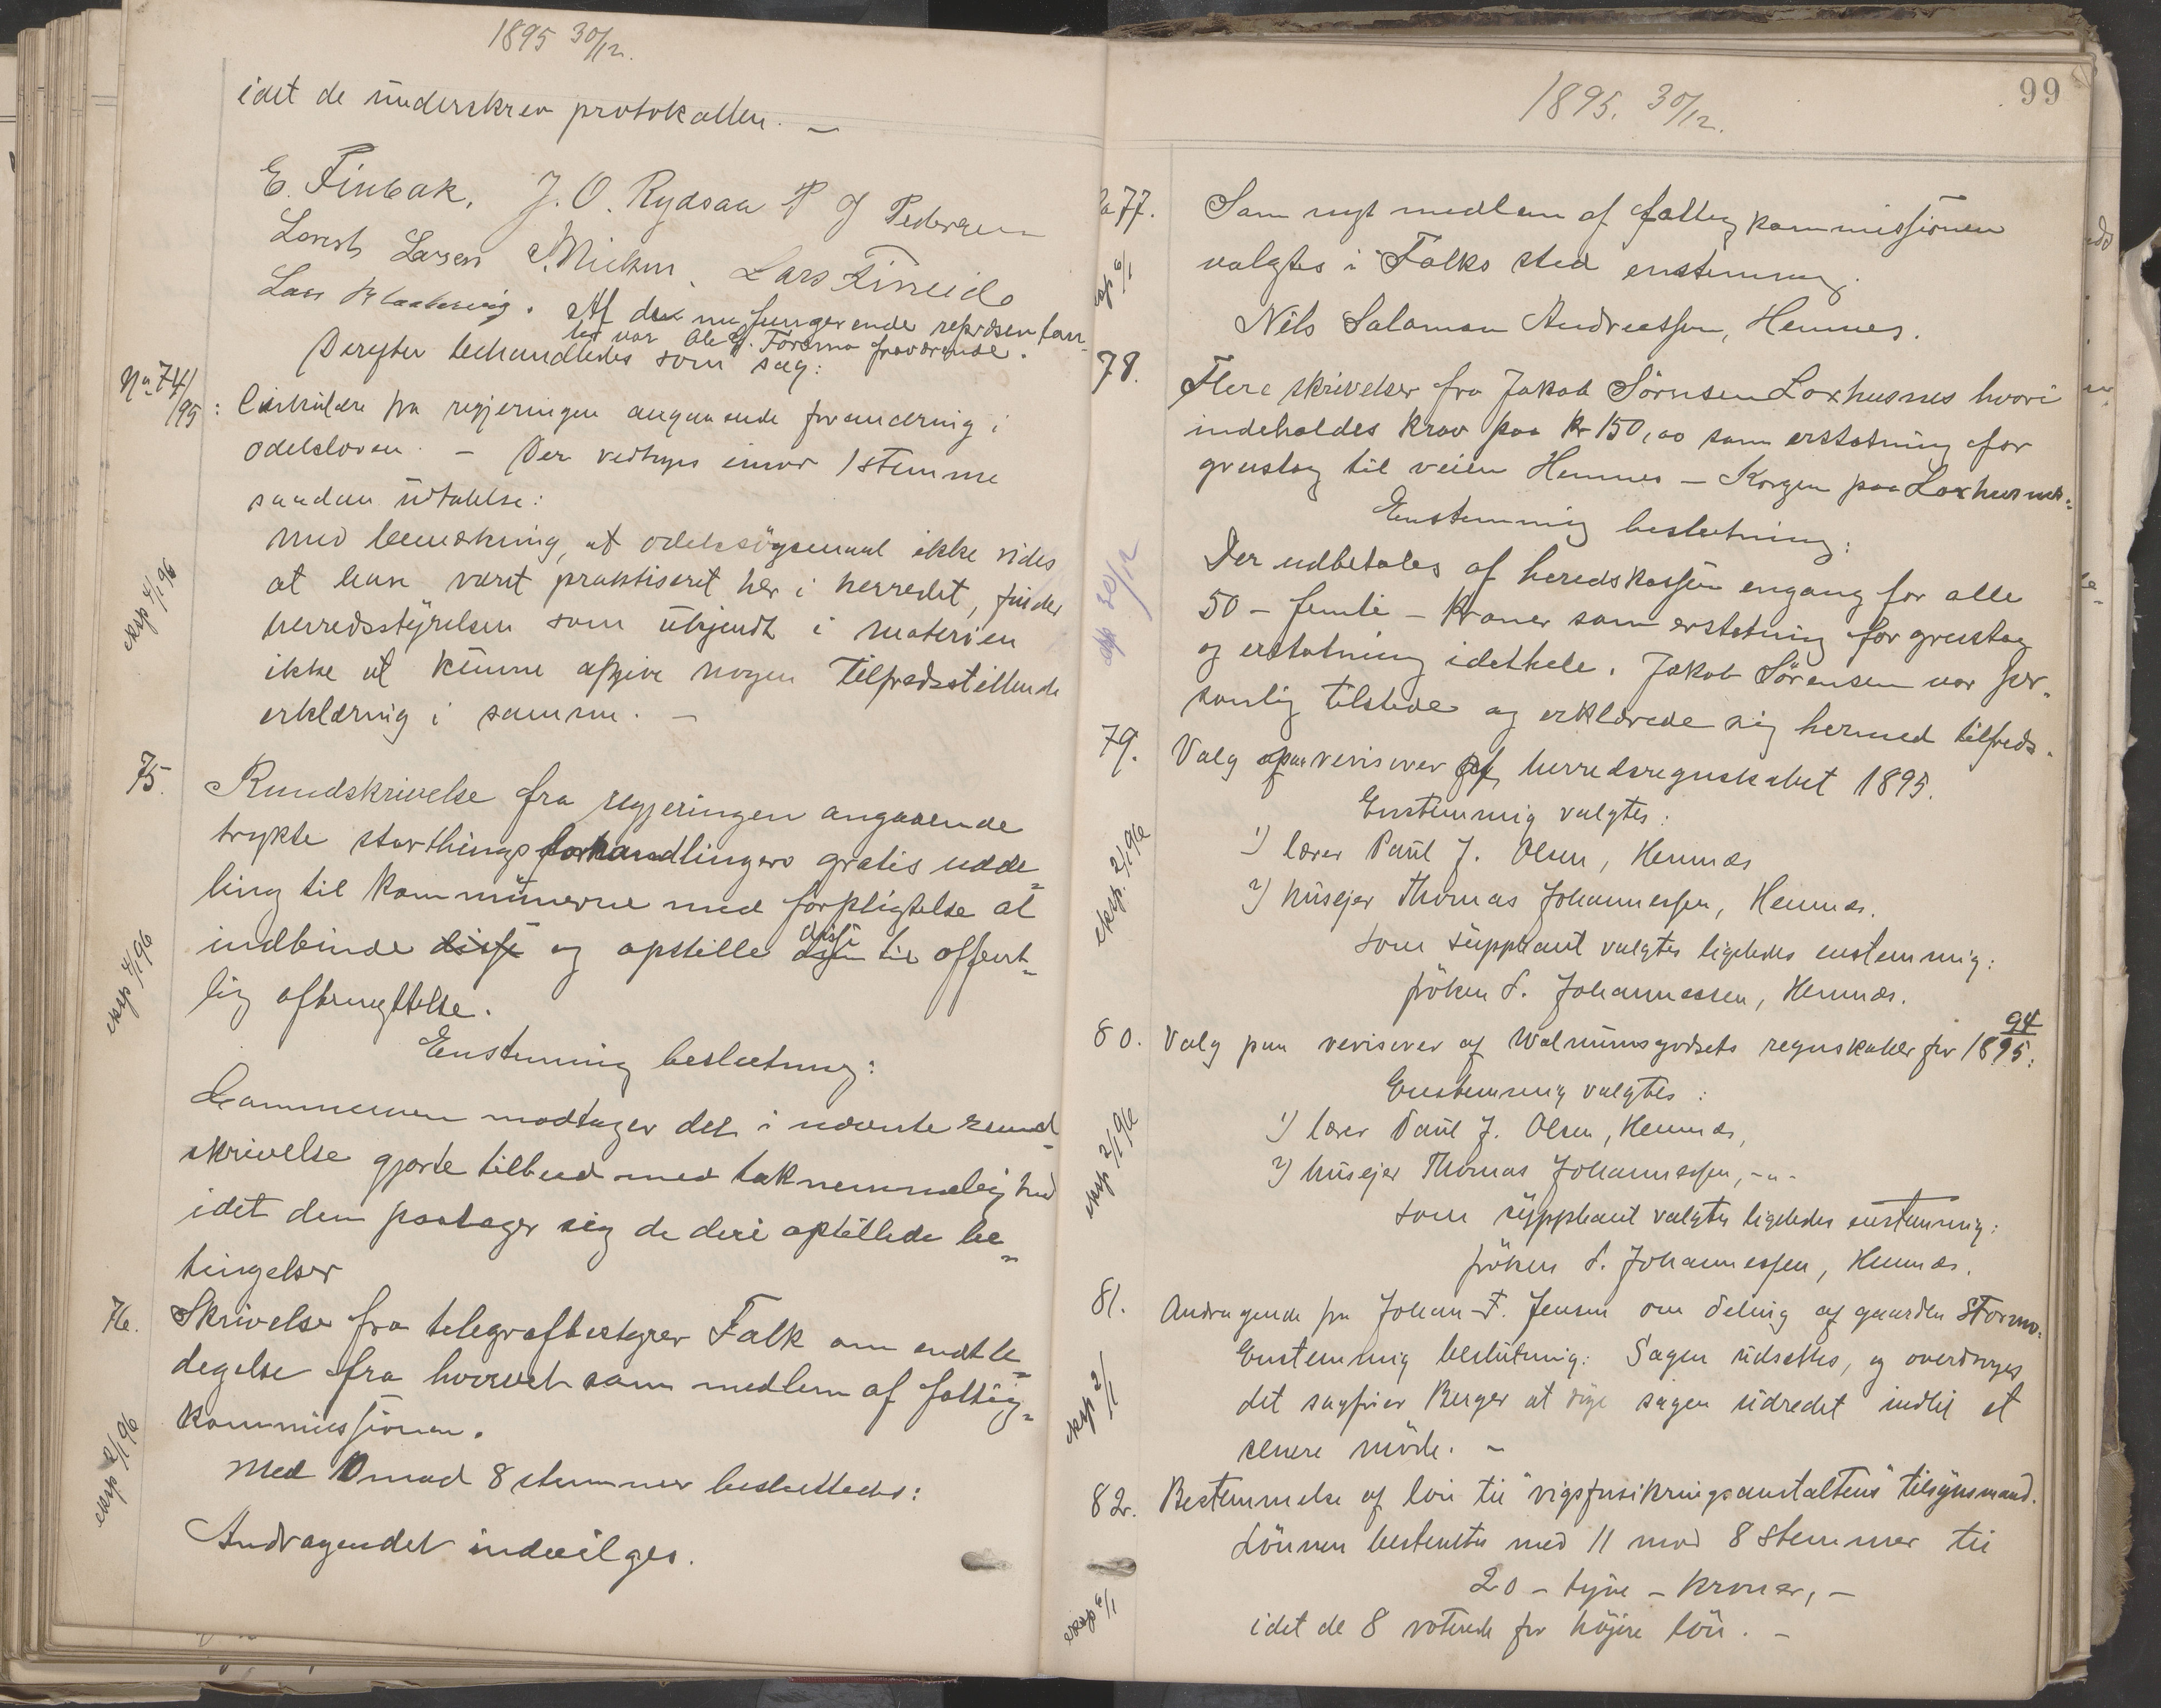 1895 30/12.
idet de underskrev protokollen. —
E. Finbak, J. O. Rydsaa P J Pedersen
Lorents Larsen Lars Fineide
Lars
Af de nu fungerende repræsentan-
ter var Ole E. Forsmo fraværende.
Derefter behandledes som sag:
No 74/
/95: Cirkulære fra regjeringen angaaende forandring i
odelsloven. — Der vedtoges imod 1 stemme
saadan udtalelse:
Med bemærkning, at odelssøgsmaal ikke vides
at have været praktiseret her i herredet, finder
herredsstyrelsen som ukjendt i materien
ikke at kunne afgive nogen tilfredsstillende
erklæring i samme. —
eksp 4/1 96
75. Rundskrivelse fra regjeringen angaaende
trykte storthingsforhandlingers gratis udde=
ling til kommunerne med forpligtelse at
indbinde disse og opstille disse til offent=
lig afbenyttelse.
eksp 4/1 96
Enstemmig beslutning:
Communen modtager det i nævnte rund=
skrivelse gjorte tilbud med taknemmelighed
idet den paatager sig de deri opstillede be=
tingelser
76. Skrivelse fra telegrafbestyrer Falk om endtle=
digelse fra hvervet som medlem af fattig=
kommissionen.
eksp 2/1 96
Med 10 mod 8 stemmer besluttedes:
Andragendet indvilges.
99
1895. 30/12.
No 77. Som nyt medlem af fattigkommissionen
valgtes i Falks sted enstemmig.
eksp 6/1
Nils Salamon Andreassen, Hemnes.
78. Flere skrivelser fra Jakob Sörensen Loxhusnes hvori
indeholdes krav paa kr 150,00 som erstatning for
grustag til veien Hemnes — Korgen paa Loxhusnes:
Enstemmig beslutning:
eksp 30/12
Der udbetales af heredskassen engang for alle
50 – femti – Kroner som erstatning for grustag
og erstatning idethele. Jakob Sörensen var per=
sonlig tilstede og erklærede sig hermed tilfreds.
79. Valg paa revisorer af herredsregnskabet 1895.
Enstemmig valgtes:
1) lærer Paul J. Olsen, Hemnæs
2) husejer Thomas Johannessen, Hemnæs.
eksp. 2/1 96
som suppleant valgtes ligeledes enstemmig:
fröken S. Johannessen, Hemnæs.
80. Valg paa revisorer af Walnumsgodsets regnskaber for 1895 94:
Enstemmig valgtes:
1) lærer Paul J. Olsen, Hemnæs,
2) husejer Thomas Johannessen, -"-
eksp 2/1 96
som suppleant valgtes ligeledes enstemmig:
fröken S. Johannessen, Hemnæs.
81. Andragende fra Johan F. Jensen om deling af gaarden Stormo.
Enstemmig beslutning: Sagen udsættes, og overdrages
det sagfører Berger at faa sagen udredet indtil et
senere möde. —
eksp 2/1
82. Bestemmelse af lön til "vigsforsikringsanstaltens" tilsynsmand.
Lönnen bestemtes med 11 mod 8 stemmer til
20 – tyve – kroner, –
idet de 8 voterede for höjere lön. —
eksp 6/1